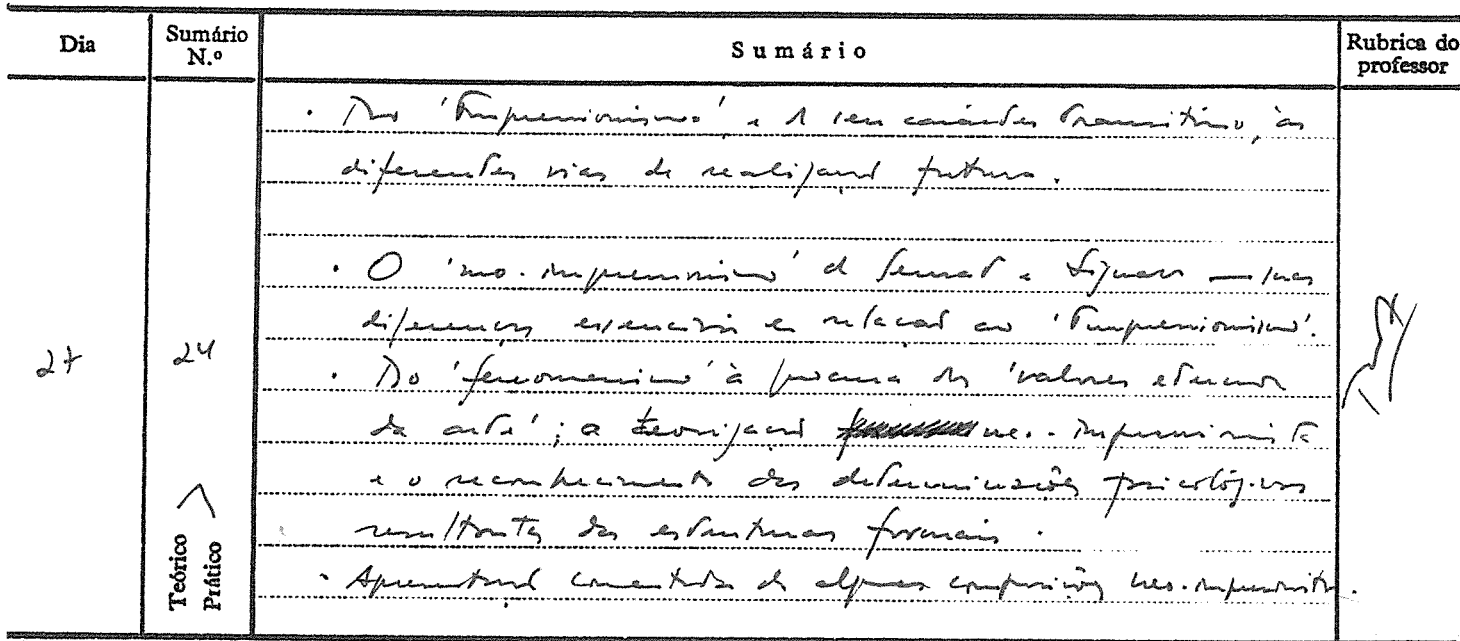 Dia
Sumário N.º
Sumário
Rubrica do professor
27
24
Teórico
Prático
· Do 'Impressionismo', e o seu carácter transitivo, às
diferentes vias de realização futura.
· O 'neo-impressionismo' de Seurat e Signac — suas
diferenças essenciais em relação ao 'Impressionismo'.
· Do 'fenomenismo' à procura dos 'valores eternos
da arte'; a teorização neo-impressionista
e o reconhecimento das determinações psicológicas
resultantes das estruturas formais.
· Apresentação comentada de algumas composições neo-impressionistas.